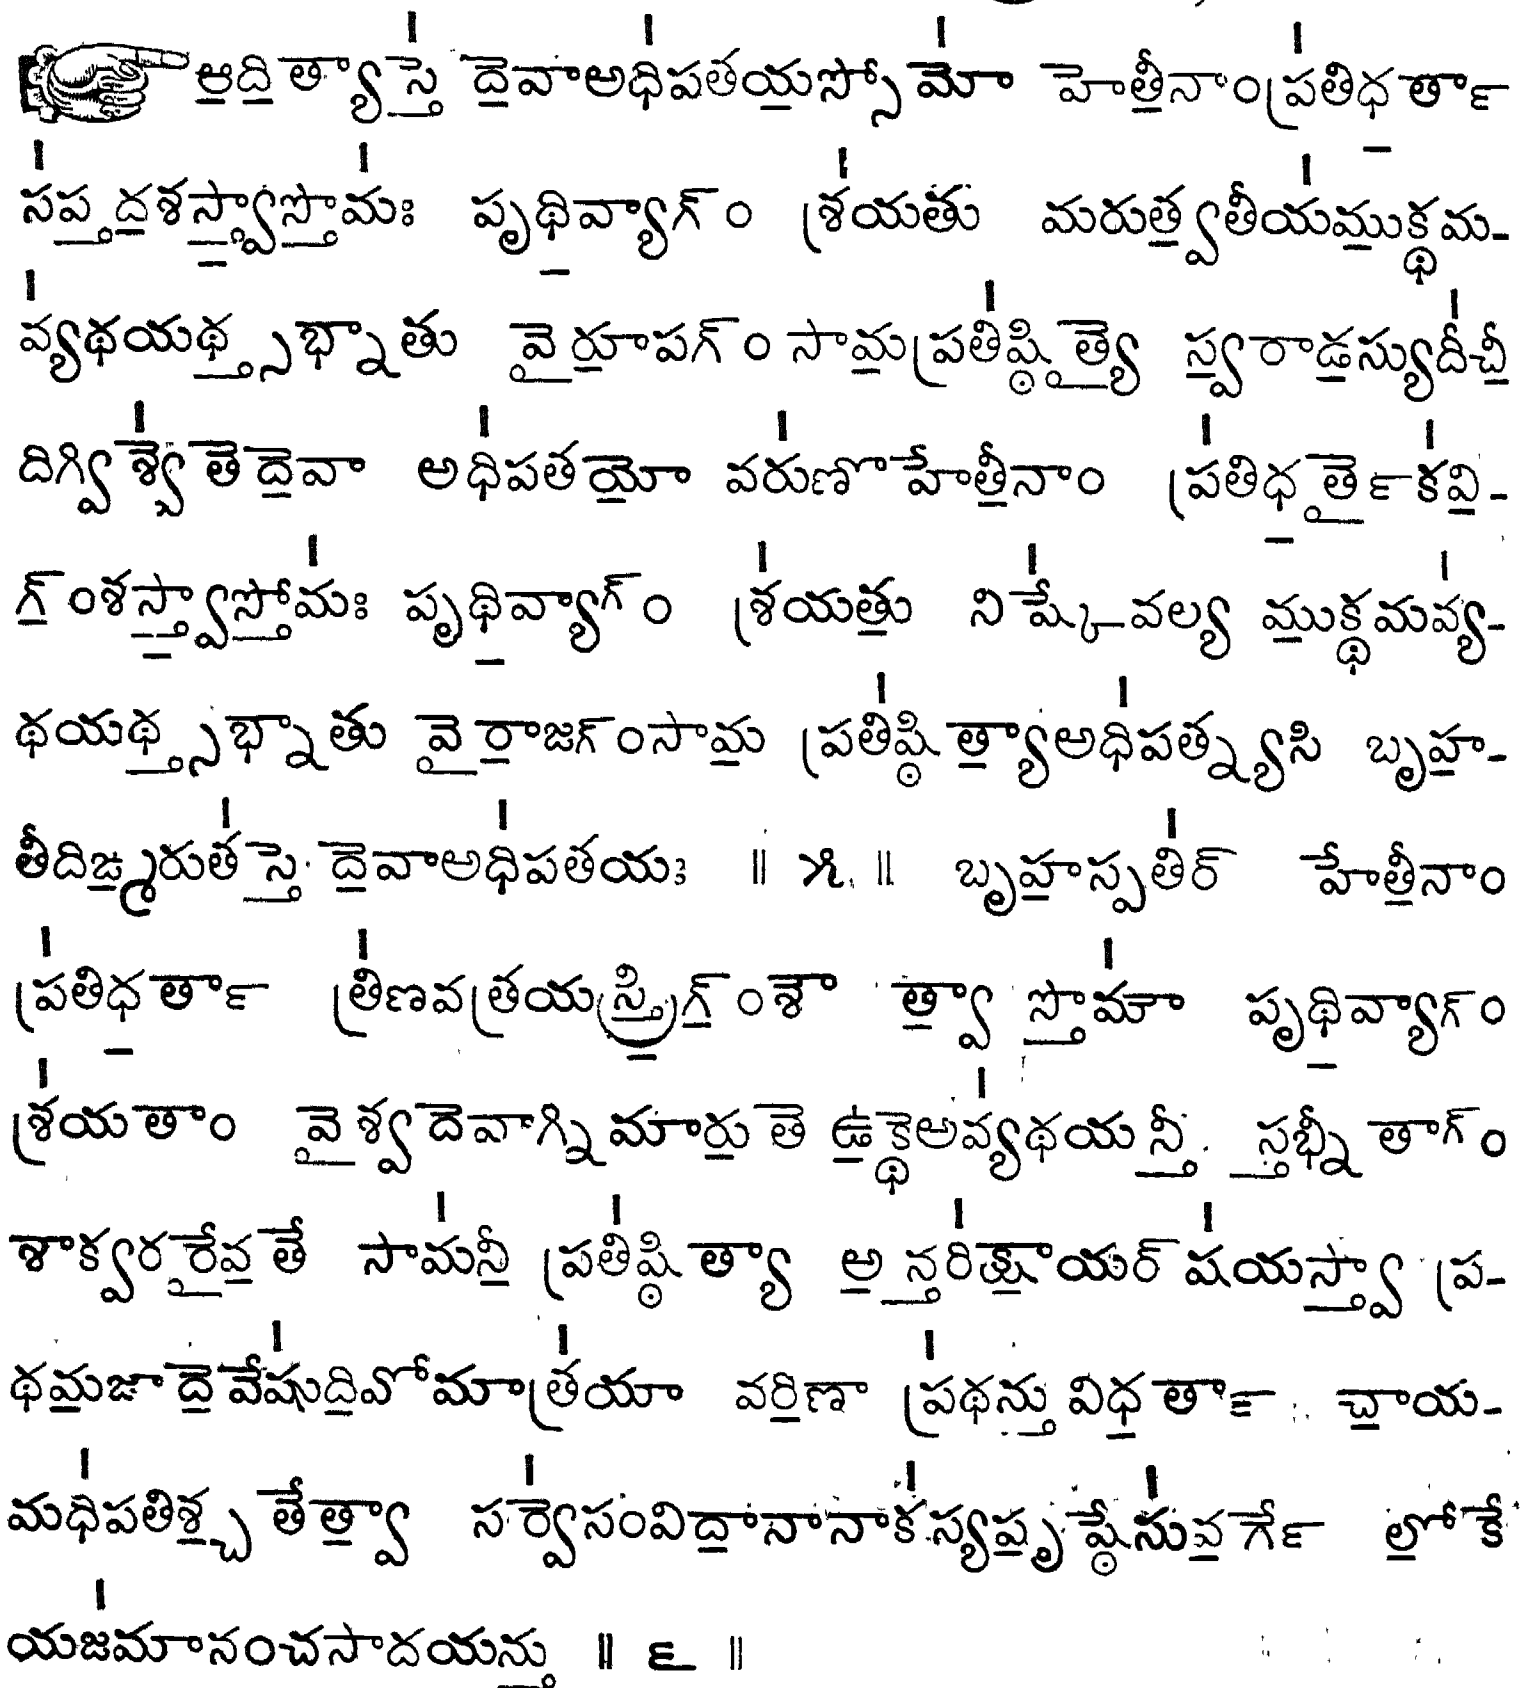 ఆ॒ది॒త్యాస్తే॑ దే॒వాఅధి॑పతయ॒స్సోమో॑ హెతీ॒నాంప్ర॑తిధ॒ర్తా
స॑ప్త॒ద॒శస్త్వా॒స్తోమః॑ పృథి॒వ్యాగ్ం శ్ర॑యతు మరుత్వ॒తీయ॑ము॒క్థమ-
వ్య॑థయథ్స్త॒భ్నాతు వై॒రూ॒పగ్ం సామ॒ప్రతి॑ష్ఠి॒త్యై స్వ॒రాడ॒స్యుదీ॑చీ॒
దిగ్విశ్వే॑ తె దే॒వా అధి॑పతయో॒ వరు॑ణొహేతీ॒నాం ప్ర॑తిధ॒ర్తై॒క॑వి॒-
గ్॒ంశస్త్వా॒స్తోమః॑ పృథి॒వ్యాగ్ం శ్ర॑యతు॒ నిష్కే॑వల్య ము॒క్థమవ్య॑-
థయథ్స్త॒భ్నాతు వై॒రా॒జగ్ంసామ॒ ప్రతి॑ష్ఠిత్యా॒అధి॑పత్న్యసి బృహ॒-
తీదిఙ్మ॒రుత॑స్తే॒ దే॒వాఅధి॑పతయః ॥ ౫ ॥ బృహ॒స్పతి॑ర్ హేతీ॒నాం
ప్ర॑తిధ॒ర్తా త్రి॑ణవత్రయస్త్రి॒గ్॒ంశౌ త్వా॒ స్తోమౌ॑ పృథి॒వ్యాగ్ం
శ్ర॑యతాం వై॒శ్వదెవాగ్నిమారు॒తె ఉ॒క్థెఅవ్య॑థయన్తీ॒ స్త॒భ్నీతాగ్ం
శాక్వరరై॒వ॒తే సామ॑నీ॒ ప్రతి॑ష్ఠిత్యా అ॒న్తరి॑క్షా॒యర్ ష॑యస్త్వా॒ ప్ర-
థమ॒జా దే॒వేషు॑ది॒వోమాత్ర॑యా వరి॒ణా ప్ర॑థన్తు॒ విధ॒ర్తా॒ చా॒య-
మధి॑పతిశ్చ॒ తేత్వా॒ సర్వే॑సంవిదా॒నానాక॑స్యపృ॒ష్ఠేసు॑వ॒ర్గే లో॒కే
యజ॑మానంచసాదయన్తు॒ ॥ ౬ ॥